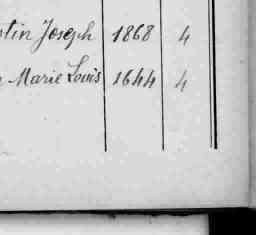 Joseph 1868 4
Marie Louis 1644 4